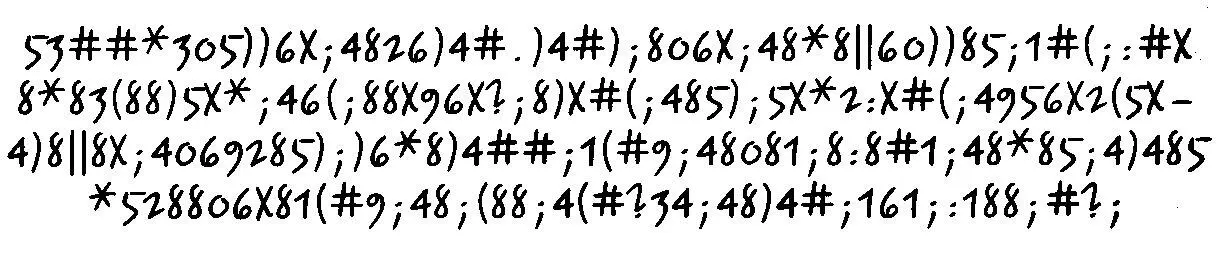 53##*305))6X;4826)4#.)4#);806X;48*8||60))85;1#(;:#X
8*83(88)5X*;46(;88X96X?;8)X#(;485);5X*2:X#(;4956X2(5X-
4)8||8X;4069285);)6*8)4##;1(#9;48081;8:8#1;48*85;4)485
*528806X81(#9;48;(88;4(#?34;48)4#;161;:188;#?;